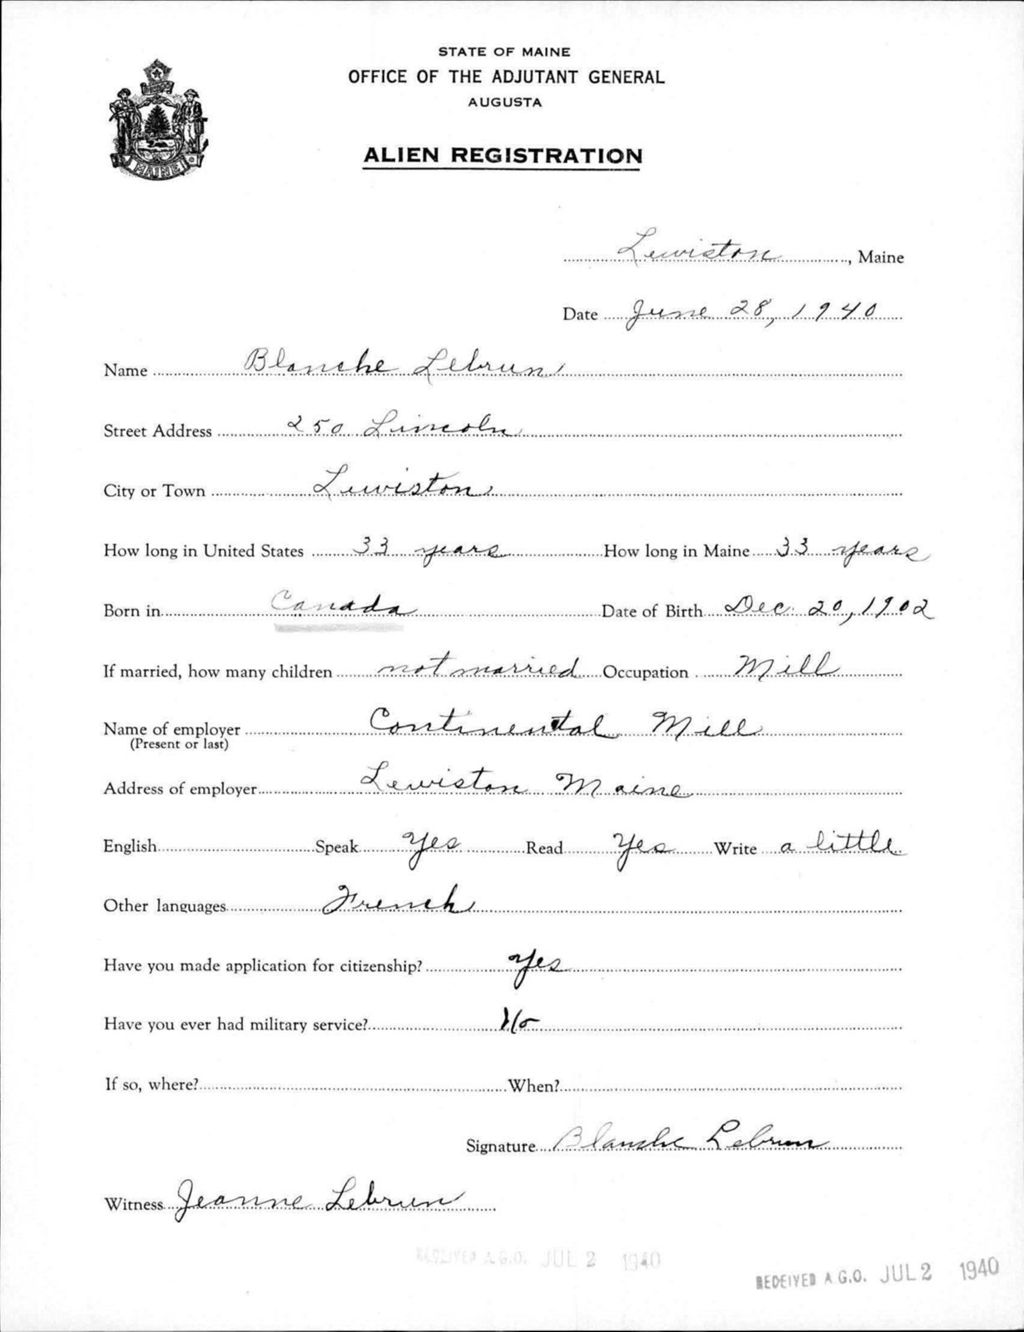 STATE OF MAINE
OFFICE OF THE ADJUTANT GENERAL
AUGUSTA
ALIEN REGISTRATION
MAINE
Lewiston, Maine
Date June 28, 1940
Name Blanche Lebrun
Street Address 250 Lincoln
City or Town Lewiston
How long in United States 33 years How long in Maine 33 years
Born in Canada Date of Birth Dec. 20, 1902
If married, how many children not married Occupation Mill
Name of employer Continental Mill
(Present or last)
Address of employer Lewiston Maine
English Speak Yes Read Yes Write a little
Other languages French
Have you made application for citizenship? Yes
Have you ever had military service? No
If so, where? When?
Signature Blanche Lebrun
Witness Jeanne Lebrun
RECEIVED A.G.O. JUL 2 1940
RECEIVED A.G.O. JUL 2 1940